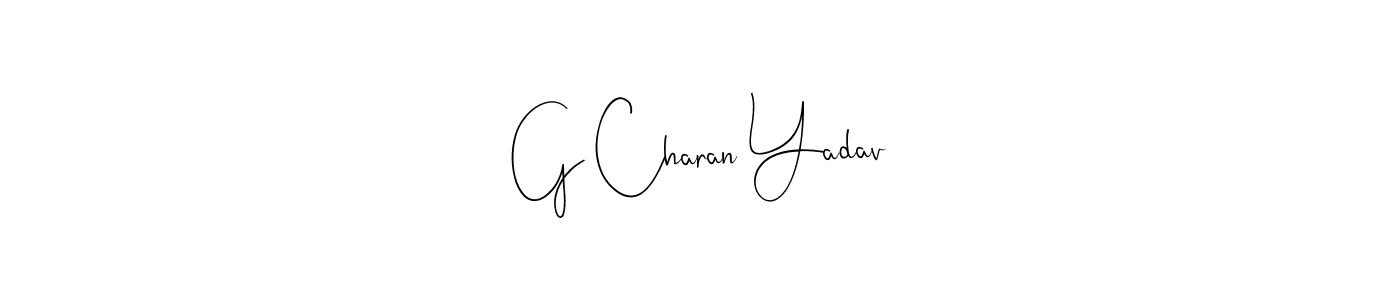 G Charan Yadav